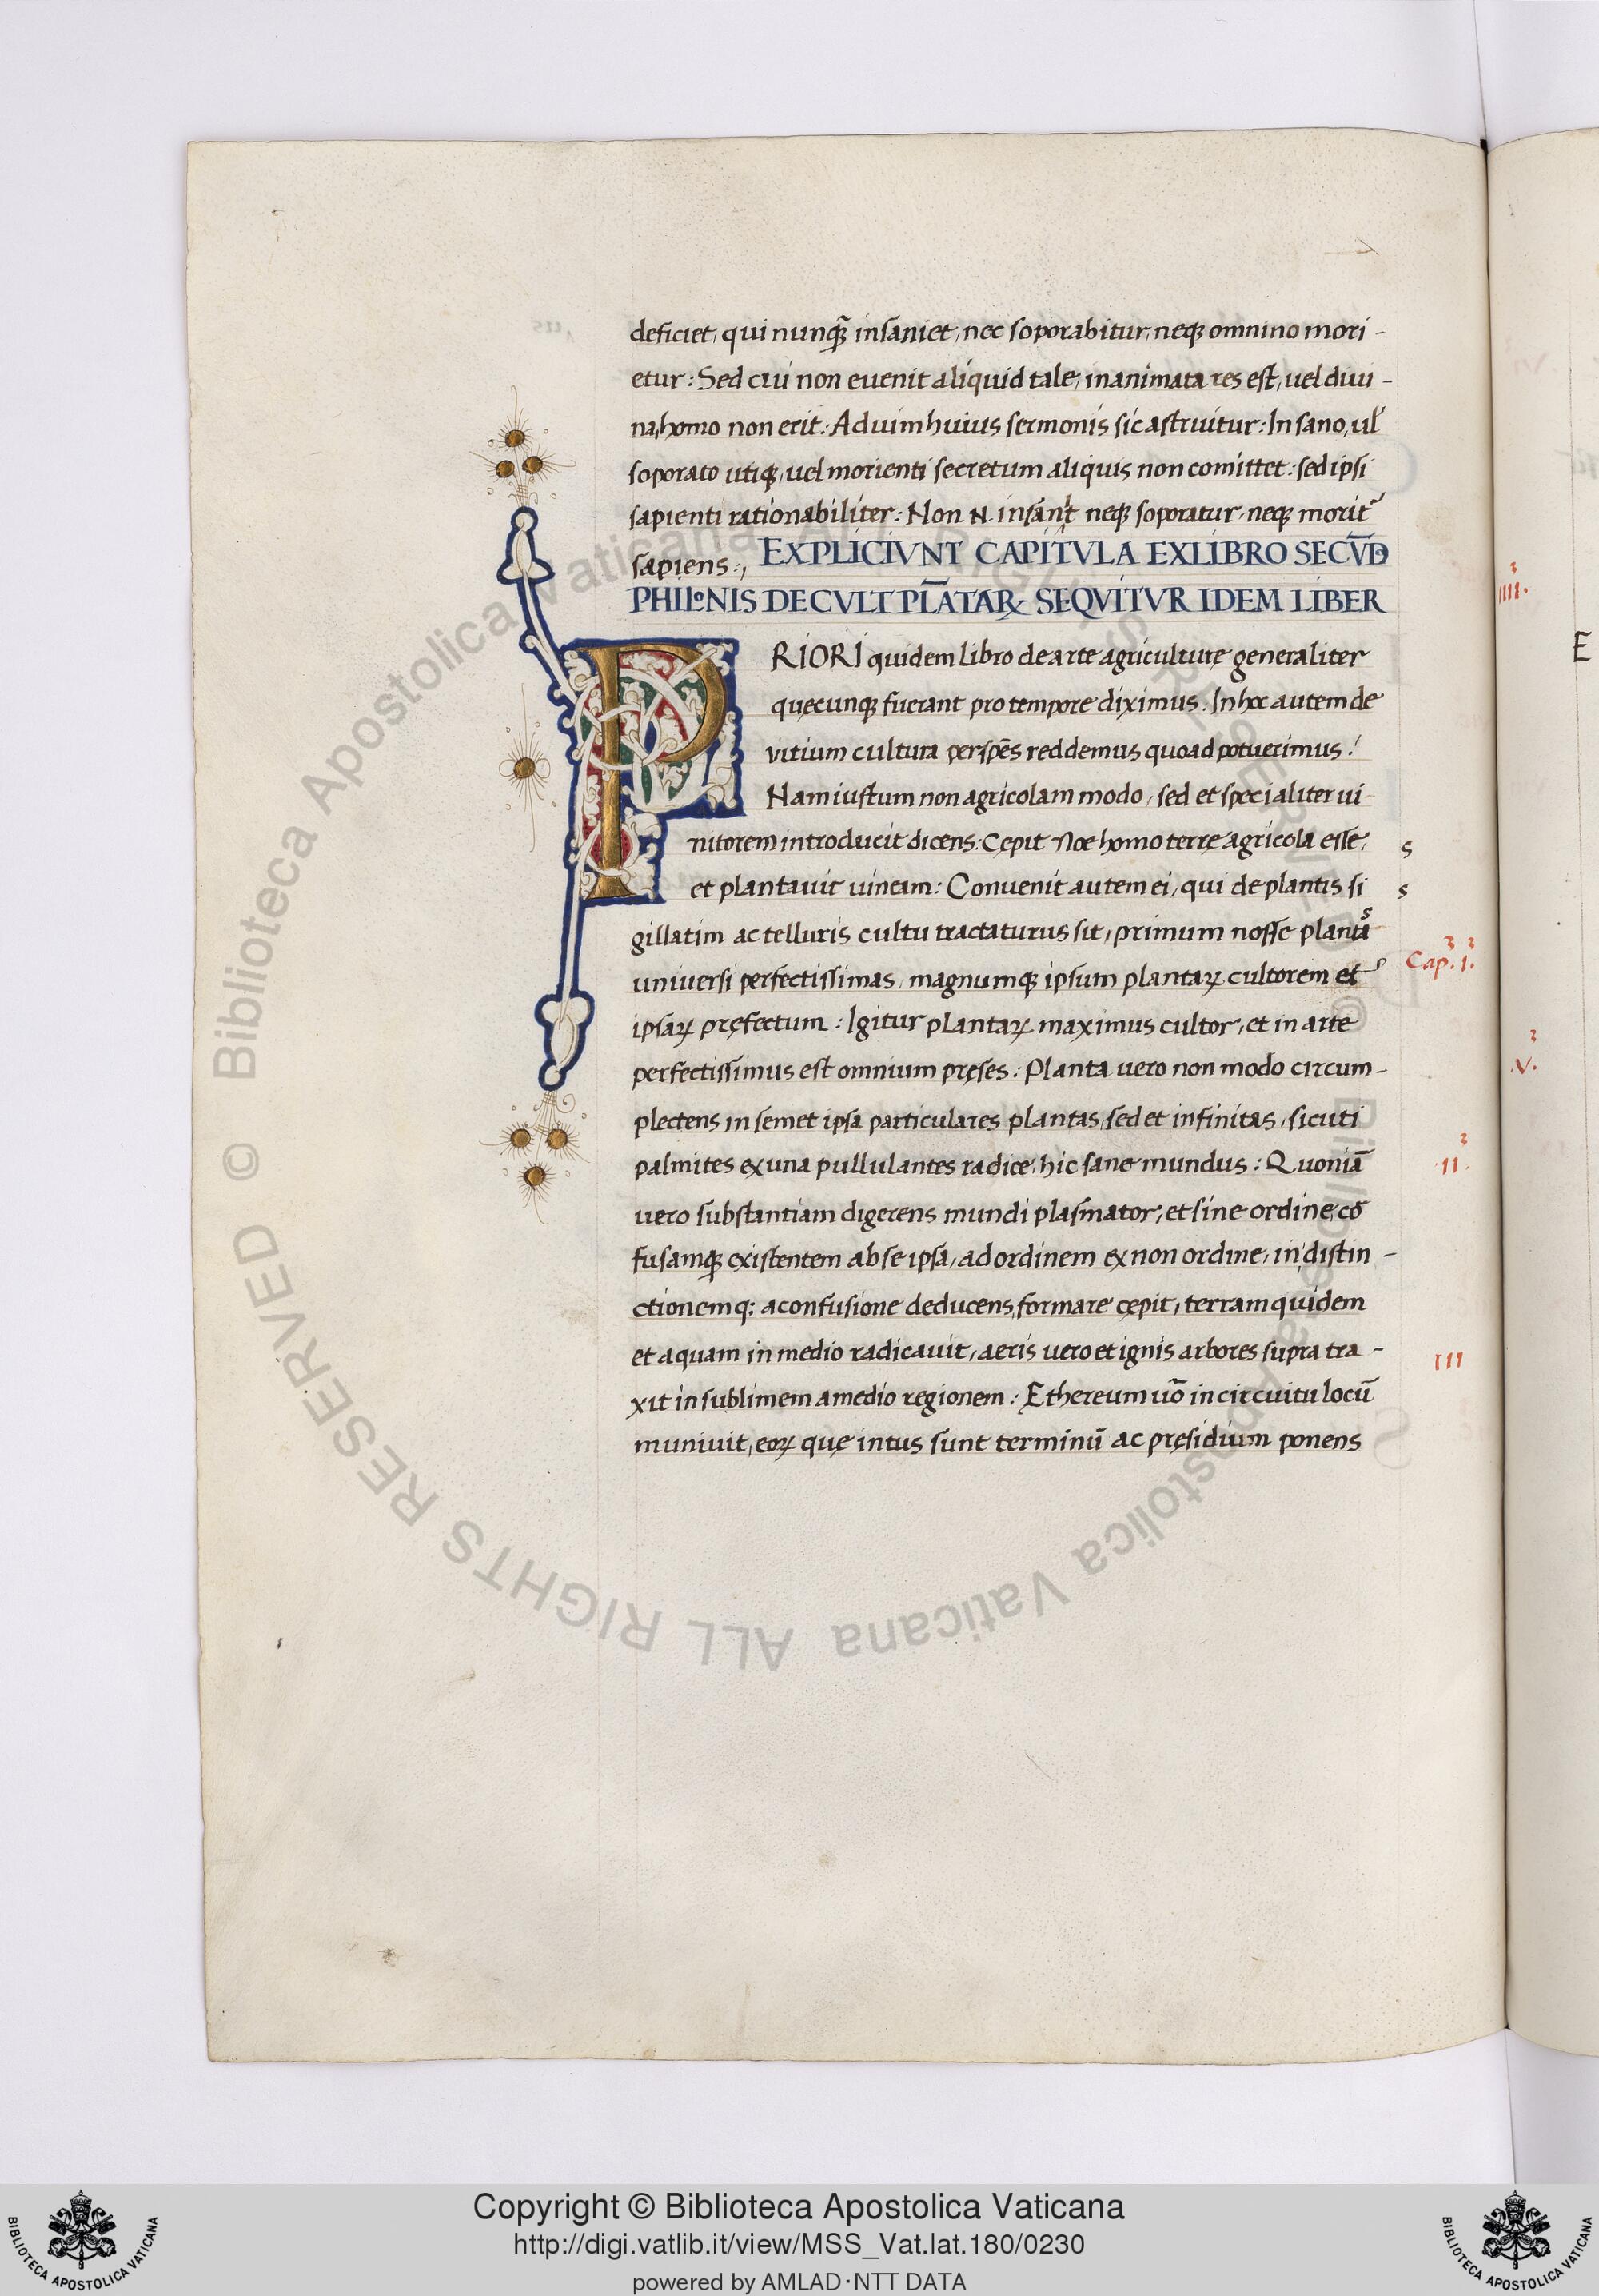 deficiet, qui nunqꝫ̃ insaniet, nec soporabitur, neqꝫ omnino mori-
etur: Sed cui non euenit aliquid tale, inanimata res est, uel diui-
na, homo non erit: Aduim huius sermonis sic astruitur: Insano, ul̛
soporato utiqꝫ, uel morienti secretum aliquis non comittet: sed ipsi
sapienti rationabiliter: Non .N. insanit neqꝫ soporatur, neqꝫ morit᷑
sapiens:, EXPLICIVNT CAPITVLA EXLIBRO SECV̄D
PHILoNIS DECVLT PLĀTARꝜ SEQVITVR IDEM LIBER
PRIORI quidem libro de arte agriculturę generaliter
quęcunqꝫ fuerant pro tempore diximus. In hoc autem de
vitium cultura perspēs reddemus quoad potuerimus!
Nam iustum non agricolam modo, sed et specialiter ui-
nitorem introducit dicens: Cępit Noe homo terrę agricola esse,
s
et plantauit uineam: Conuenit autem ei, qui de plantis si
s
gillatim ac telluris cultu tractaturus sit, primum nosse plantaˢ
uniuersi perfectissimas, magnumqꝫ ipsum plantaꝝ cultorem et
Cap. 1.
ipsaꝝ pręfectum: Igitur plantaꝝ maximus cultor, et in arte
perfectissimus est omnium pręses: Planta uero non modo circum-
plectens in semet ipsa particulares plantas, sed et infinitas, sicuti
palmites ex una pullulantes radice, hic sane mundus: Quoniā
.11.
uero substantiam digerens mundi plasmator, et sine ordine, cō
fusamqꝫ existentem ab se ipsa, ad ordinem ex non ordine, in distin-
ctionemq; a confusione deducens, formare cępit, terram quidem
et aquam in medio radicauit, aeris uero et ignis arbores supra tra-
111
xit in sublimem a medio regionem: Ethereum uō in circuitu locū
muniuit, eoꝝ quę intus sunt terminū ac pręsidium ponens
.IIII.
E
.V.
© Biblioteca Apostolica Vaticana ALL RIGHTS RESERVED © Biblioteca Apostolica Vaticana ALL RIGHTS RESERVED
Copyright © Biblioteca Apostolica Vaticana
http://digi.vatlib.it/view/MSS_Vat.lat.180/0230
powered by AMLAD·NTT DATA
BIBLIOTECA APOSTOLICA VATICANA
BIBLIOTECA APOSTOLICA VATICANA